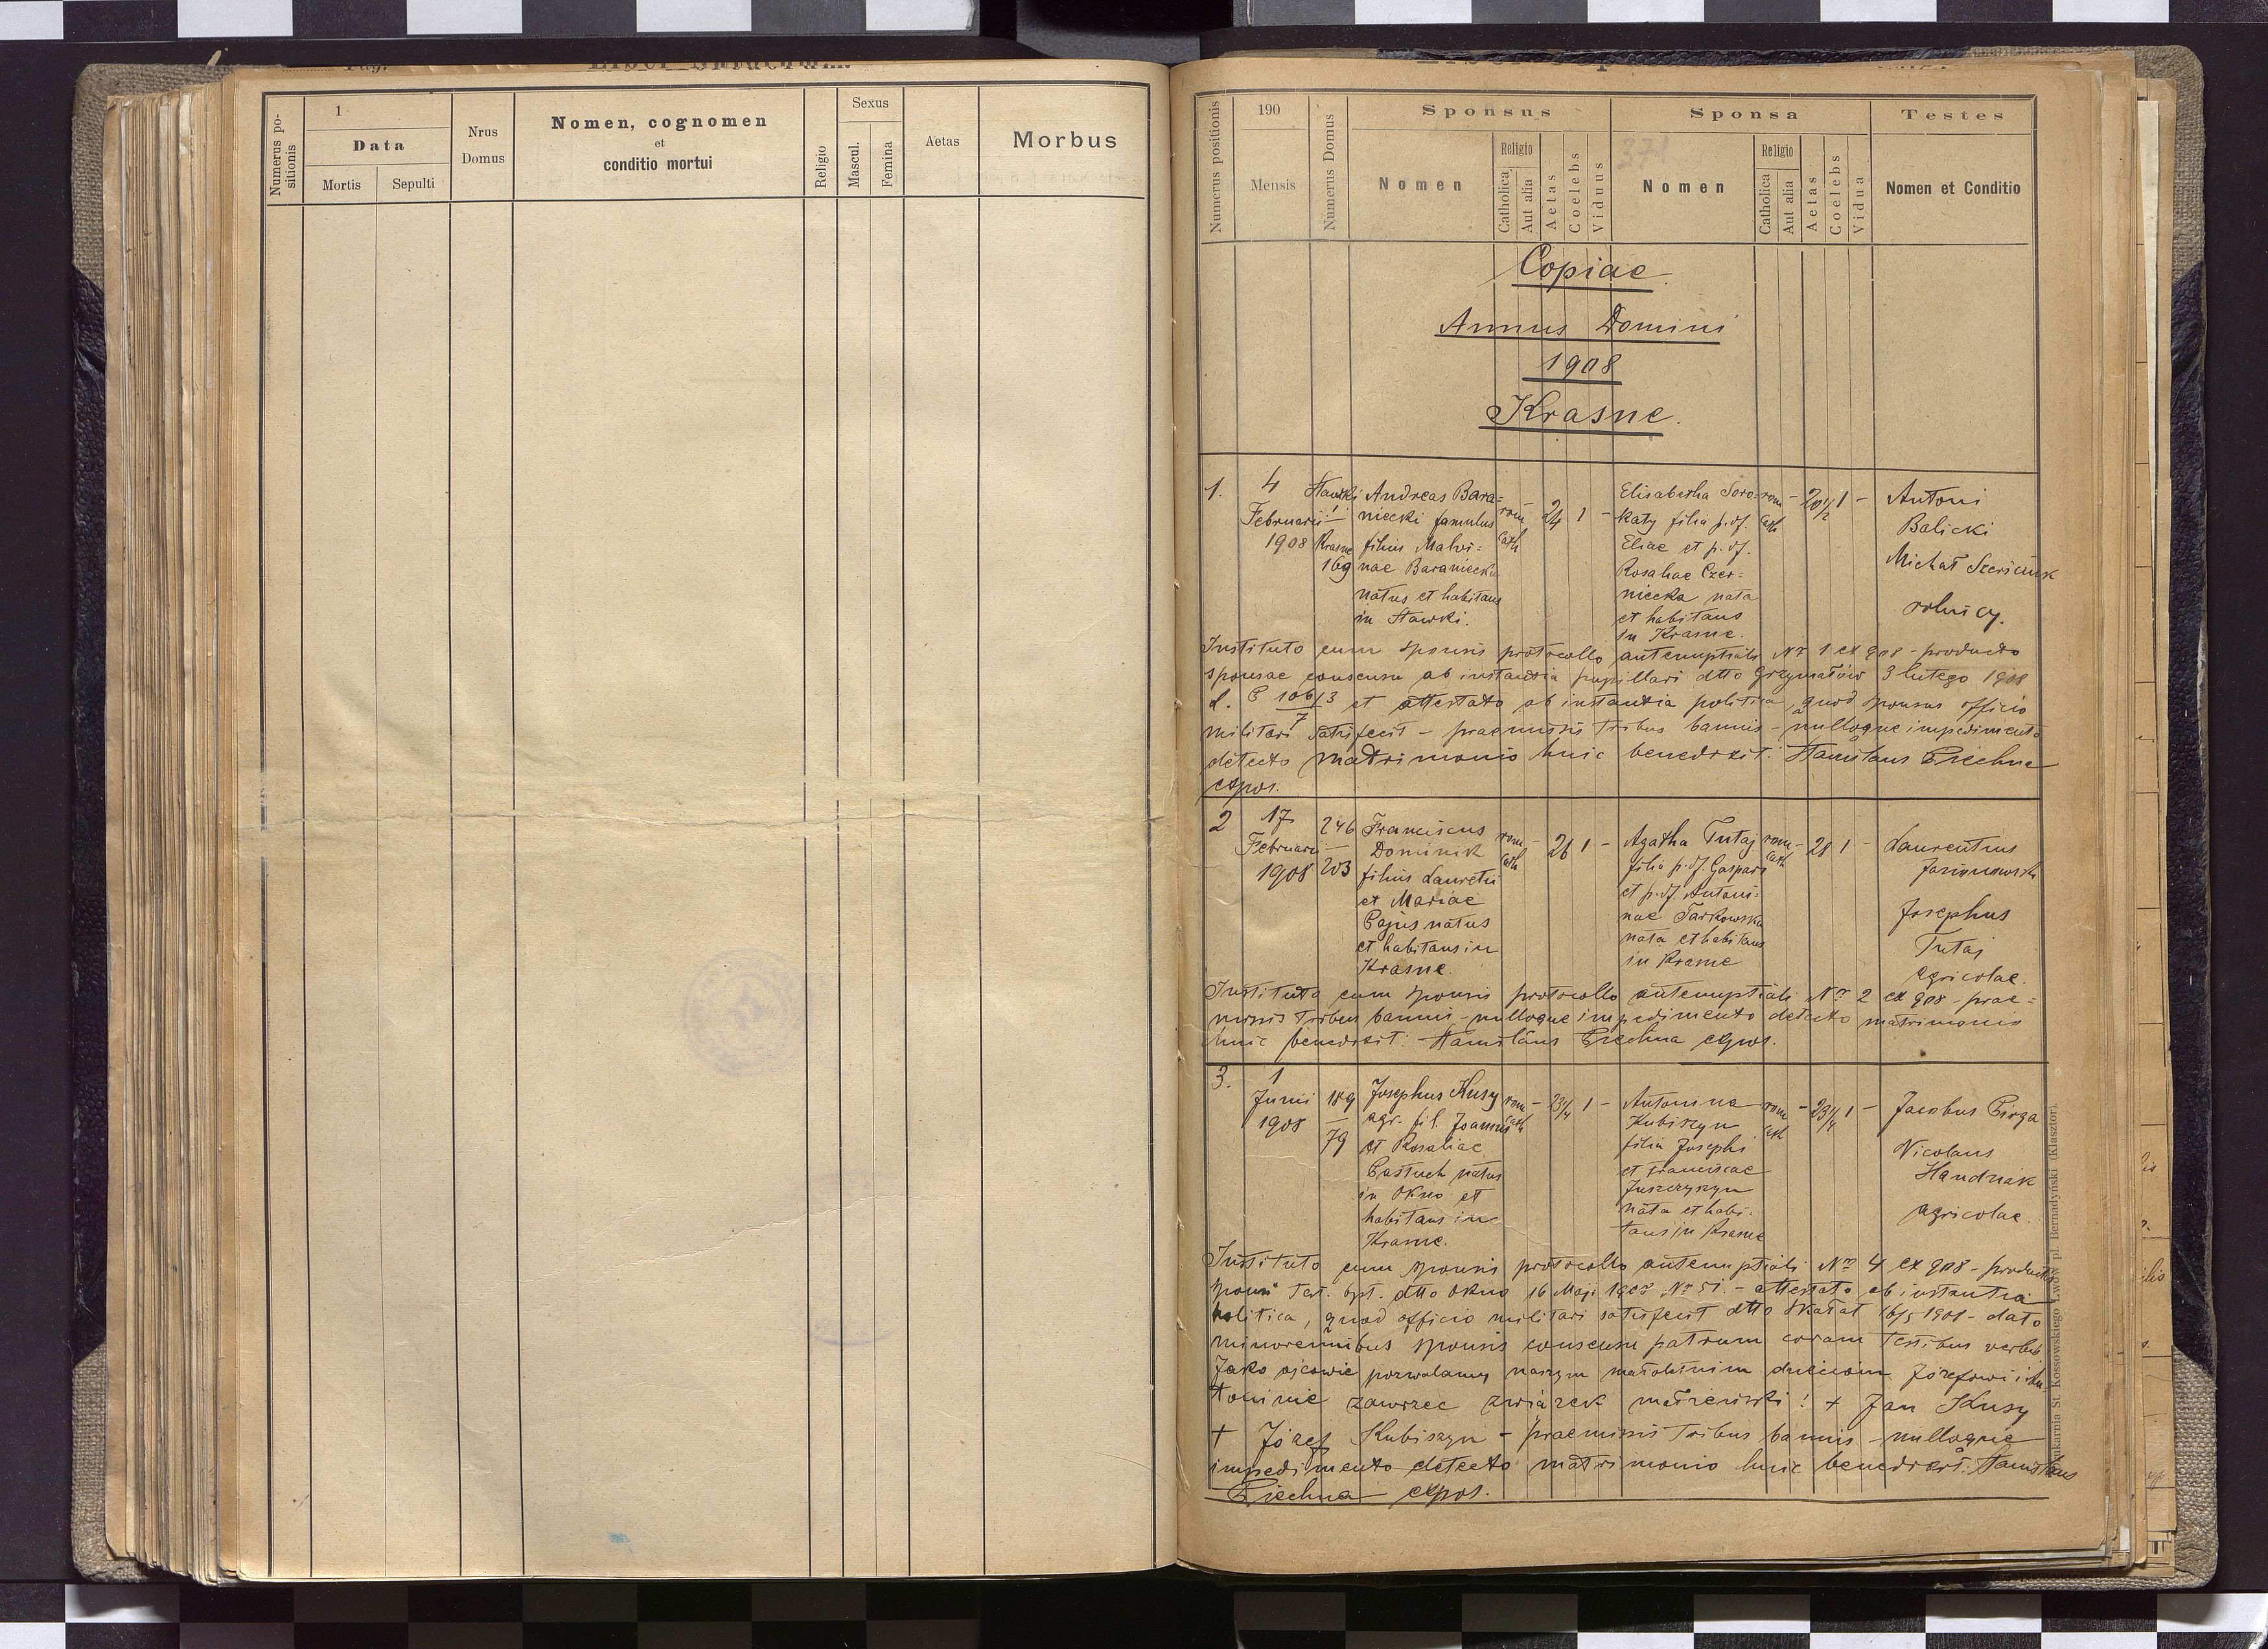 Numerus po-
sitionis
1
Data
Mortis
Sepulti
Nrus
Domus
Nomen, cognomen
et
conditio mortui
Religio
Sexus
Mascul.
Femina
Aetas
Morbus
Numerus positionis
190
Mensis
Numerus Domus
Sponsus
Nomen
Religio
Catholica
Aut alia
Aetas
Coelebs
Viduus
Sponsa
Nomen
Religio
Catholica
Aut alia
Aetas
Coelebs
Vidua
Testes
Nomen et Conditio
Copiae
Annus Domini
1908
Krasne.
1.
4
Februarii
1908
Stawki
1
Krasne
169
Andreas Bara=
niecki famulus
filius Malwi=
nae Baraniecka
natus et habitans
in Stawki.
rom
cath
-
24
1
-
Elisabetha Soro=
katy filia p. df.
Eliae et p. df.
Rosaliae Czer=
niecka nata
et habitans
in Krasne.
rom
cath
-
20 1/2
1
-
Antoni
Balicki
Michał
rolnicy.
Instituto cum sponsis protocollo antenuptiali Nr 1 ex 908 - producto
sponsae consensu ab instantia pupillari dtto Grzymałów 3 lutego 1908
L. P 106/3 7 et attestato ab instantia politica, quod sponsus officio
militari satisfecit - praemissis tribus bannis - nulloque impedimento
detecto matrimonio huic benedixit: Stanislaus Piechna
expos.
2
17
Februarii
1908
246
203
Franciscus
Dominik
filius Lauretii
et Mariae
Pajus natus
et habitans in
Krasne.
rom
cath
-
26
1
-
Agatha Tutaj
filia p. df. Gaspari
et p. df. Antoni=
nae Tarkowska
nata et habitans
in Krasne
rom
cath
-
28
1
-
Laurentius
Josephus
Tutaj
agricolae.
Instituto cum sponsis protocollo antenuptiali Nro 2 ex 908 - prae=
missis tribus bannis - nulloque impedimento detecto matrimonio
huic benedixit: Stanislaus Piechna expos.
3.
1
Junii
1908
189
79
Josephus Kusy
agr. fil. Joannis
et Rosaliae
Pastuch natus
in Okno et
habitans in
Krasne.
rom
cath
-
23 1/4
1
-
Antonina
Kubiszyn
filia Josephi
et Franciscae
Juszczyszyn
nata et habi=
tans in Krasne
rom
cath
-
23 1/4
1
-
Jacobus Pirga
Nicolaus
Handziak
agricolae.
Instituto cum sponsis protocollo antenuptiali Nro 4 ex 908 - producto
sponsi test. bpt. dtto Okno 16 Maji 1908 Nr 51. - attestato ab instantia
politica, quod officio militari satisfecit dtto Skałat 16/5 1901 - dato
minorennibus sponsis consensu patrum coram testibus verbis
Jako ojcowie pozwalamy naszym małoletnim dzieciom Józefowi i An
toninie zawrzec związek małżeński! + Jan Kusy
+ Józef Kubiszyn - praemissis tribus bannis - nulloque
impedimento detecto matrimonio huic benedixit: Stanislaus
Piechna expos.
Drukarnia St. Kossowskiego Lwów pl. Bernadyński (Klasztor).